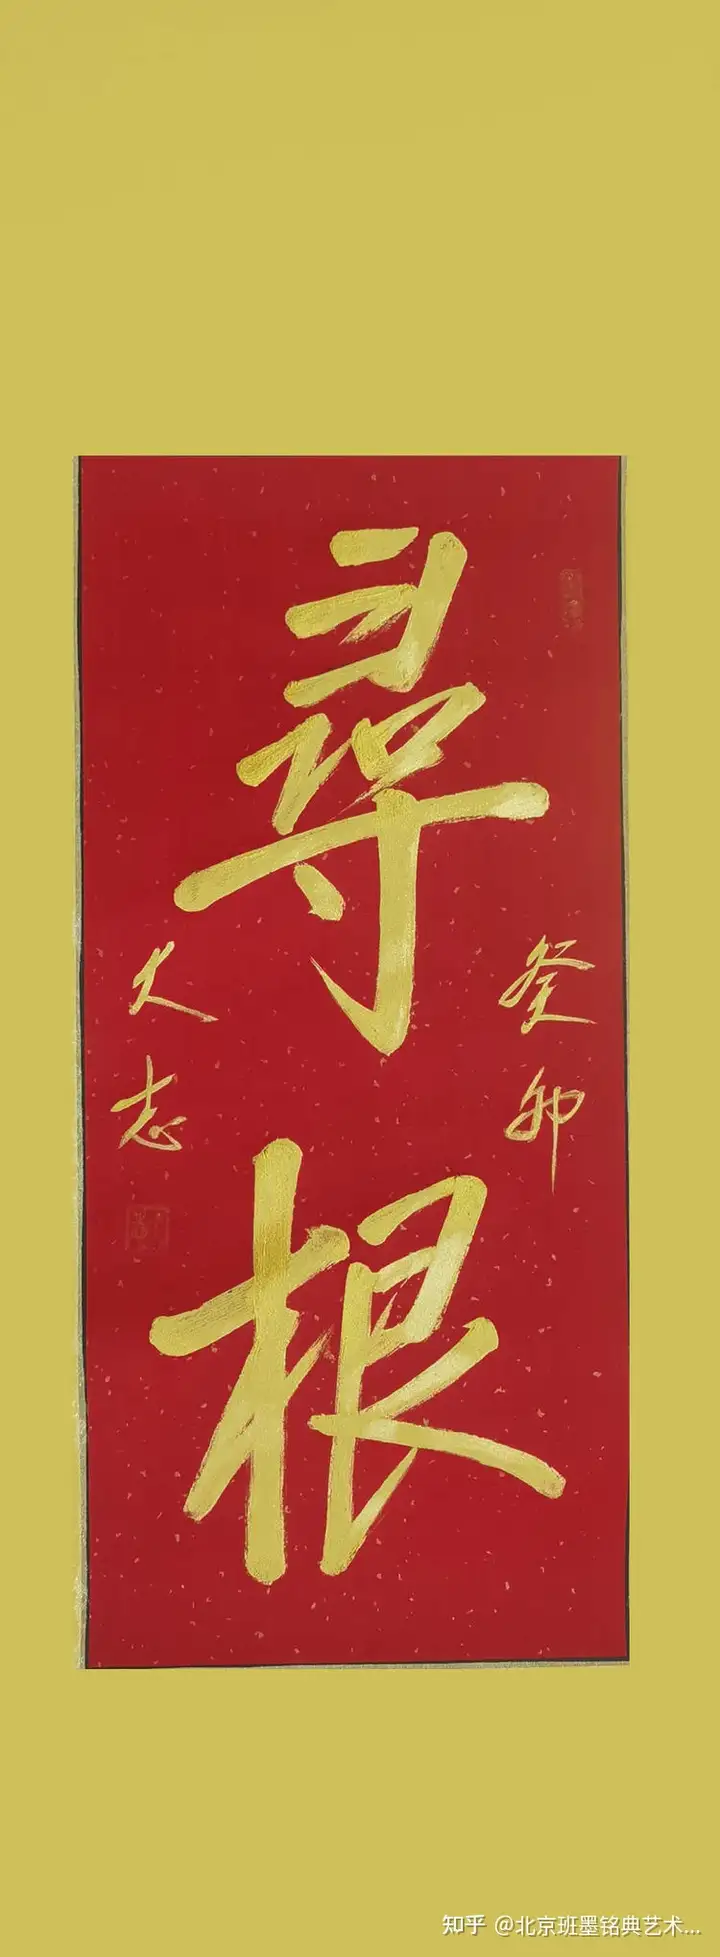 尋根
癸卯
大志
知乎 @北京班墨铭典艺术...